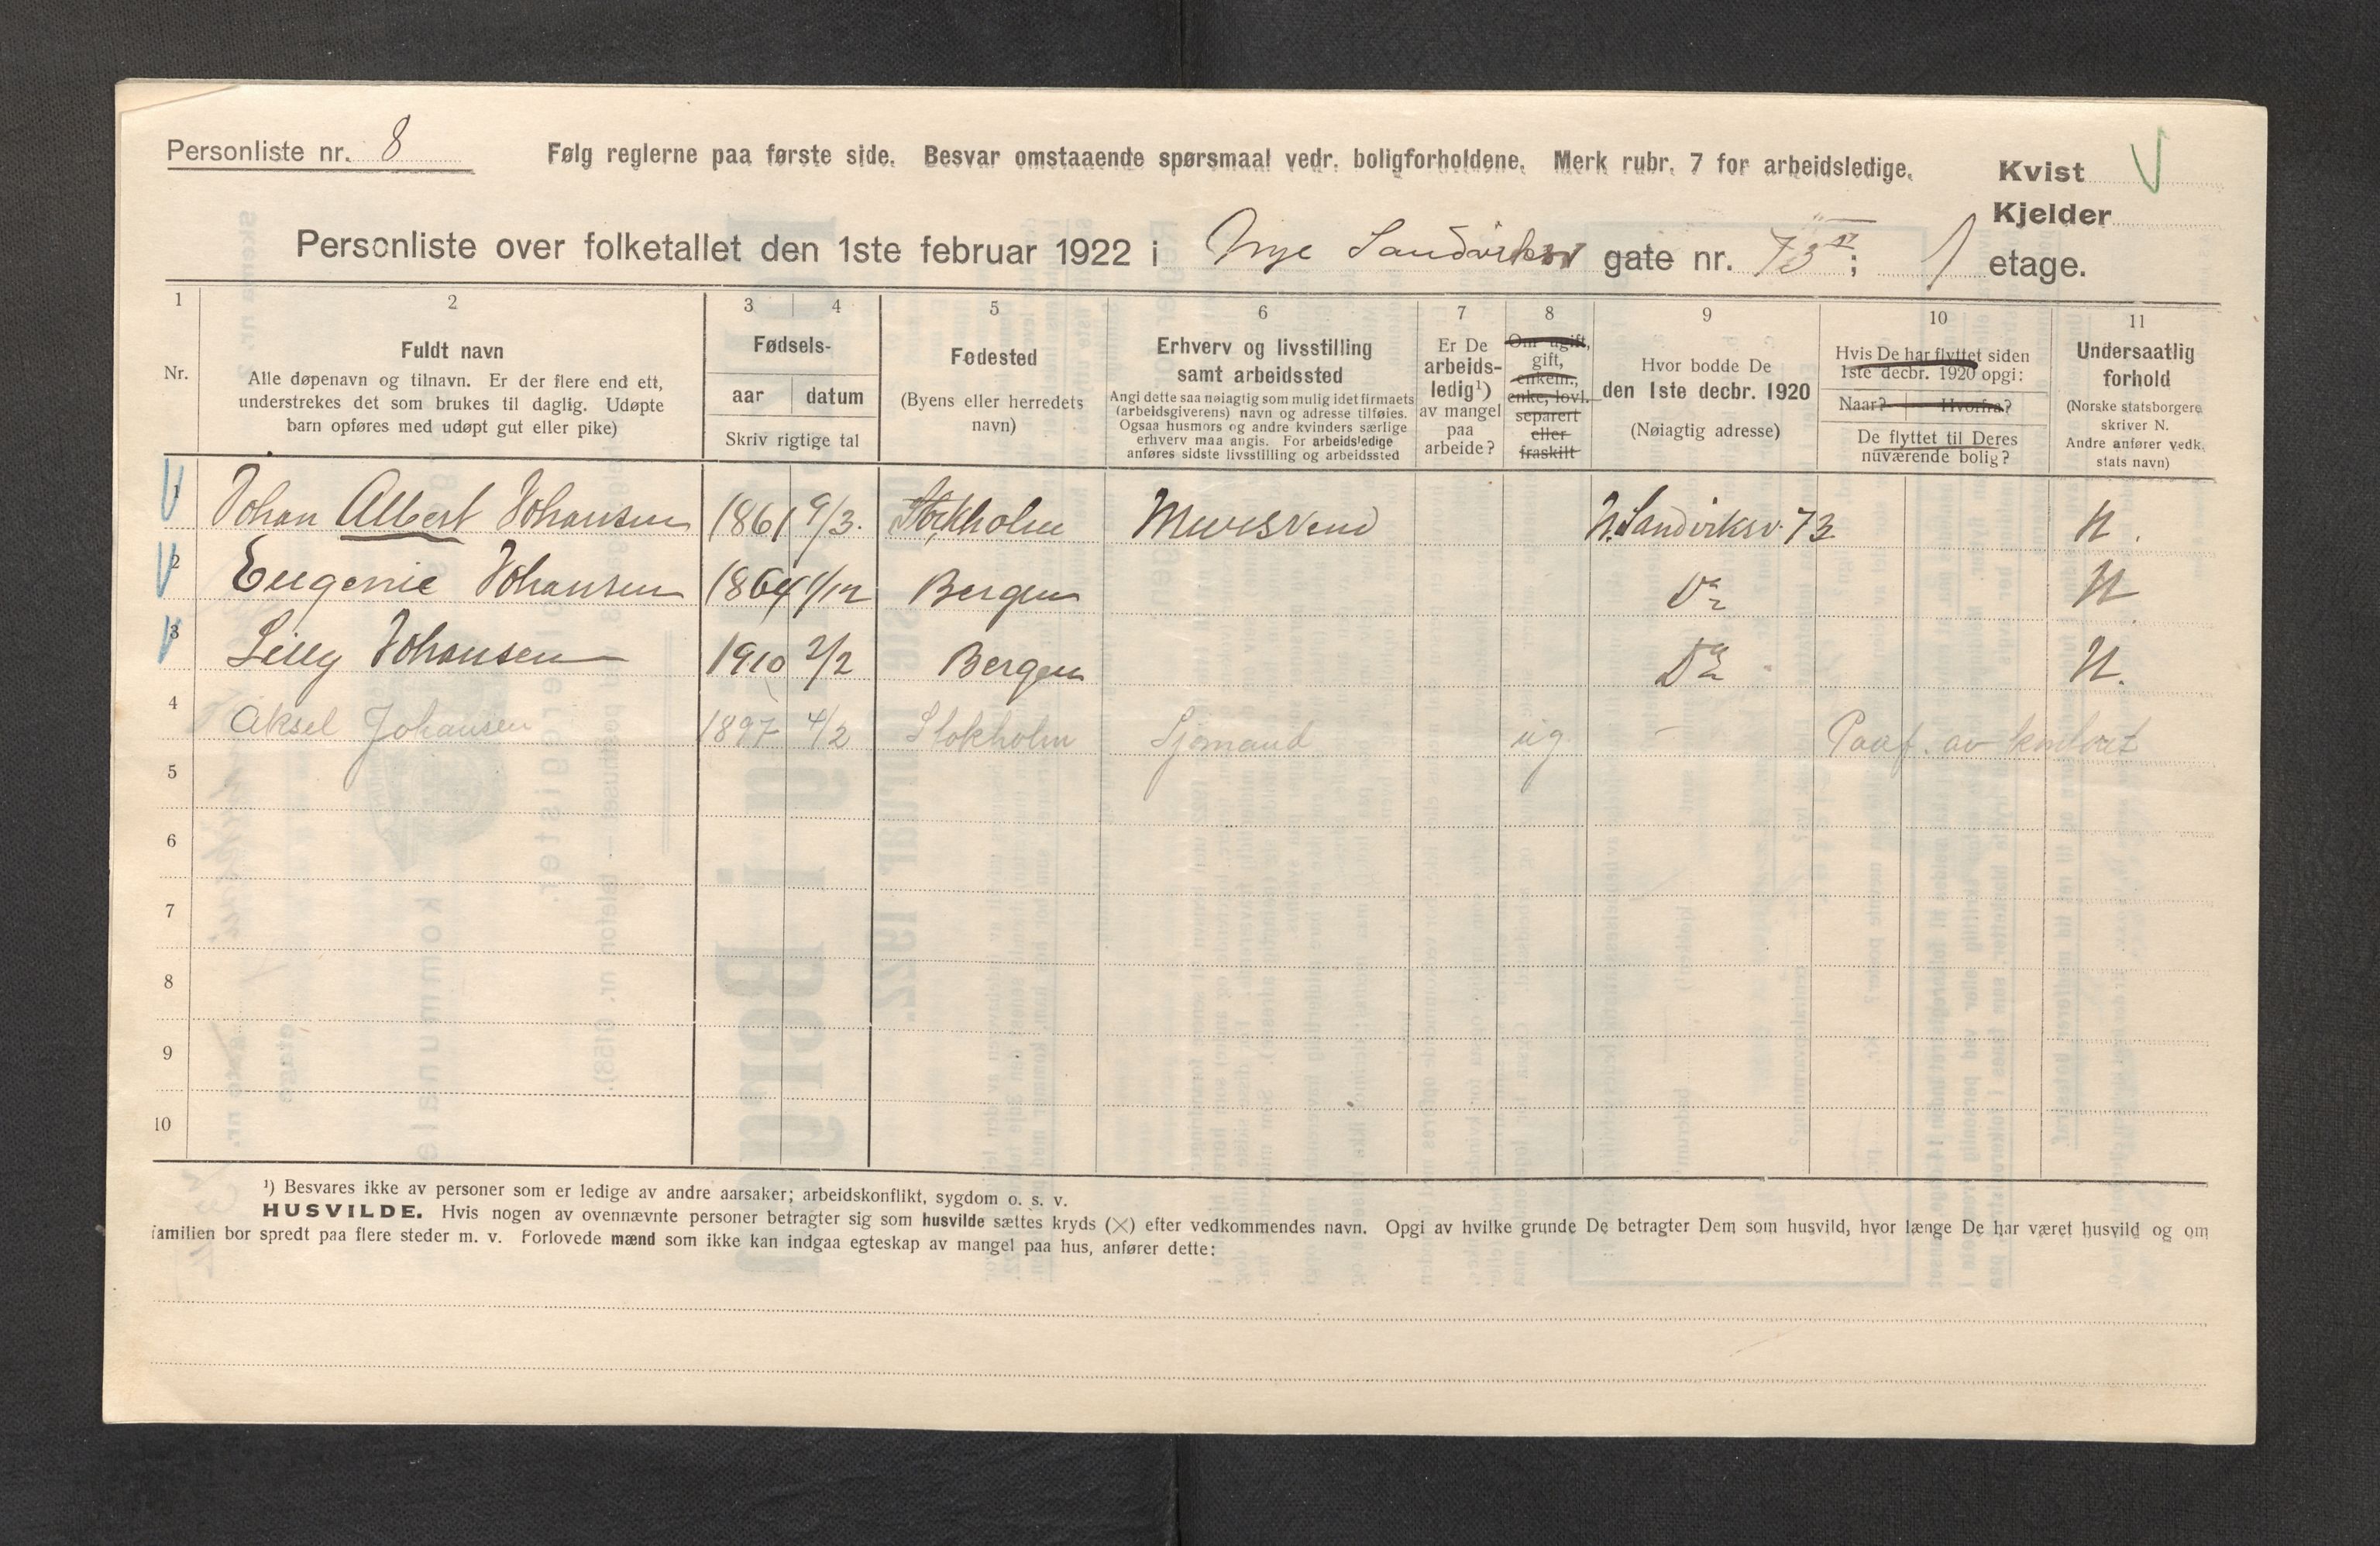 Personliste nr. 8
Følg reglerne paa første side. Besvar omstaaende spørsmaal vedr. boligforholdene. Merk rubr. 7 for arbeidsledige.
Kvist
Kjelder
Personliste over folketallet den 1ste februar 1922 i Nye Sandviksv gate nr. 73; 1 etage.
1 2 3 4 5 6 7 8 9 10 11
Nr.
Fuldt navn
Alle døpenavn og tilnavn. Er der flere end ett,
understrekes det som brukes til daglig. Udøpte
barn opføres med udøpt gut eller pike)
Fødsels-
aar datum
Skriv rigtige tal
Fødested
(Byens eller herredets
navn)
Erhverv og livsstilling
samt arbeidssted
Angi dette saa nøiagtig som mulig idet firmaets
(arbeidsgiverens) navn og adresse tilføies.
Ogsaa husmors og andre kvinders særlige
erhverv maa angis. For arbeidsledige
anføres sidste livsstilling og arbeidssted
Er De
arbeids-
ledig¹)
av mangel
paa
arbeide?
Om ugift,
gift,
enkem.,
enke, lovl.
separert
eller
fraskilt
Hvor bodde De
den 1ste decbr. 1920
(Nøiagtig adresse)
Hvis De har flyttet siden
1ste decbr. 1920 opgi:
Naar? Hvorfra?
De flyttet til Deres
nuværende bolig?
Undersaatlig
forhold
(Norske statsborgere
skriver N.
Andre anfører vedk.
stats navn)
1 Johan Albert Johansen 1861 9/3. Stockholm Mursvend N. Sandviksv. 73 N.
2 Eugenie Johansen 1864 1/12 Bergen Do N
3 Lilly Johansen 1910 2/2 Bergen Do N.
4 Aksel Johansen 1897 4/2 Stokholm Sjømand ug - Paaf. av kontoret
5
6
7
8
9
10
¹) Besvares ikke av personer som er ledige av andre aarsaker; arbeidskonflikt, sygdom o. s. v.
HUSVILDE. Hvis nogen av ovennævnte personer betragter sig som husvilde sættes kryds (×) efter vedkommendes navn. Opgi av hvilke grunde De betragter Dem som husvild, hvor længe De har været husvild og om
familien bor spredt paa flere steder m. v. Forlovede mænd som ikke kan indgaa egteskap av mangel paa hus, anfører dette: